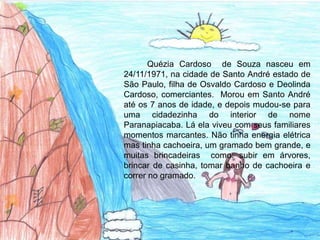 Quézia Cardoso de Souza nasceu em
24/11/1971, na cidade de Santo André estado de
São Paulo, filha de Osvaldo Cardoso e Deolinda
Cardoso, comerciantes. Morou em Santo André
até os 7 anos de idade, e depois mudou-se para
uma cidadezinha do interior de nome
Paranapiacaba. Lá ela viveu com seus familiares
momentos marcantes. Não tinha energia elétrica
mas tinha cachoeira, um gramado bem grande, e
muitas brincadeiras como: subir em árvores,
brincar de casinha, tomar banho de cachoeira e
correr no gramado.